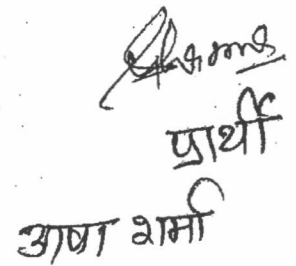 प्रार्थी
आषा शर्मा